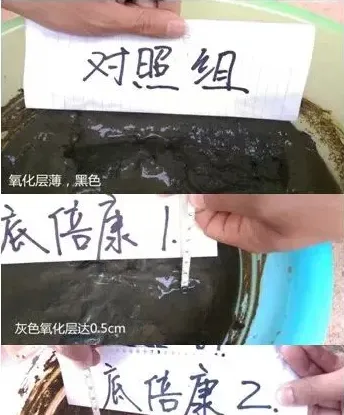 对照组
氧化层薄，黑色
底倍康 1.
灰色氧化层达0.5cm
底倍康 2.